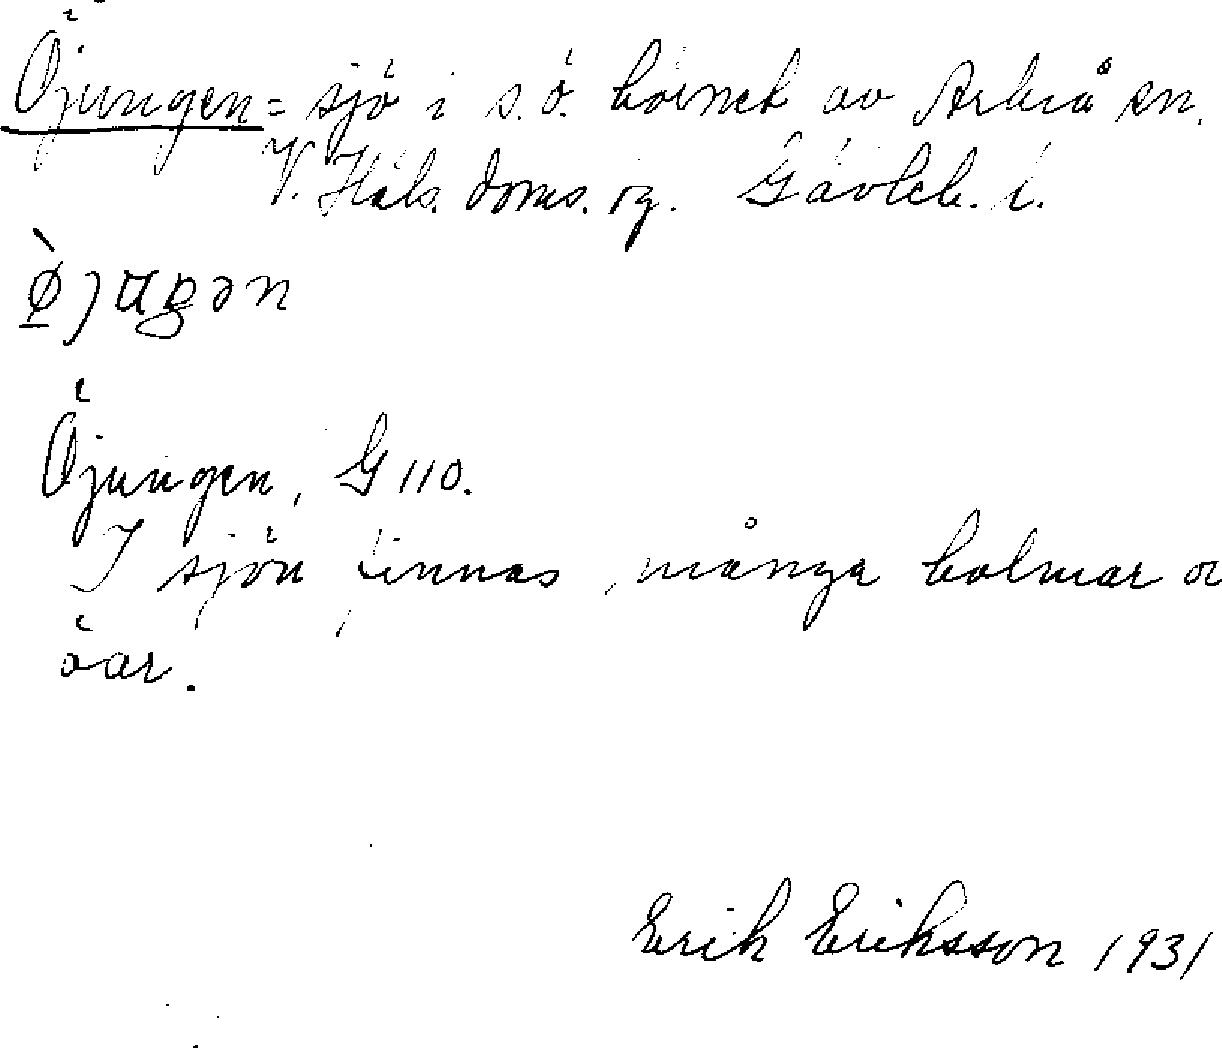 Öjungen = sjö i s.ö. hörnet av Arbrå sn.
V. Häls. doms. og. Gävleb. l.
Öjungen, G 110.
I sjön finnas många holmar o
öar.
Erik Eriksson 1931